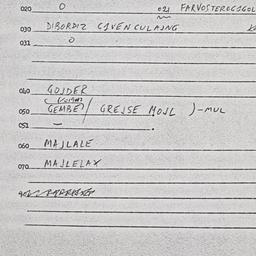 020 0 021 FARVOSTEROGOGOL
030 DIBORDIZ GIVENCULAJNG
031 0
040 GOJDER
050 GEMBE / GREJSE MOJL ) -MUL
051 -
060 MAJLALE
070 MAJLELAX